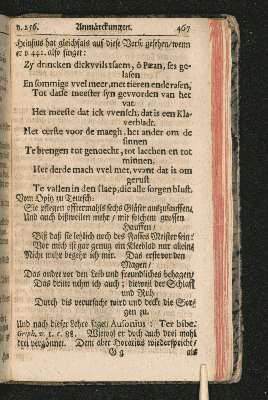 v. 256. Anmärckungen. 467
Heinsius hat gleichfals auf diese Verse gesehen/wenn
er v. 441. also singet:
Zy drincken dickvvils tsaem, ô Pæan, ses ge-
lasen
En sommige vvel meer, met tieren ende rasen,
Tot datse meester syn gevvorden van het
vat.
Het meeste dat ick vvensch, dat is een Kla-
verbladt.
Het eerste voor de maegh, het ander om de
sinnen
Te brengen tot genoecht, tot lacchen en tot
minnen.
Het derde mach vvel met, vvant dat is om
gerust
Te vallen in den slaep, die alle sorgen blust.
Vom Opitz zu Teutsch:
Sie pflegen offtermahls sechs Gläser auszusauffen/
Und auch bißweilen mehr/ mit solchem grossen
Hauffen/
Biß daß sie letzlich noch des Fasses Meister sein:
Vor mich ist gar genug ein Kleeblad nur allein/
Nicht mehr begehr ich mir. Das erste vor den
Magen/
Das ander vor den Leib und freundliches behagen/
Das dritte nehm ich auch; dieweil der Schlaff
und Ruh
Durch dis verursacht wird und deckt die Sor-
gen zu.
Und nach dieser Lehre saget Ausonius: Ter bibe.
Griph. v. 1. c. 88. Wiewol er doch auch drei mahl
drei vergönnet. Dem aber Horatius wiederspricht/
G g als